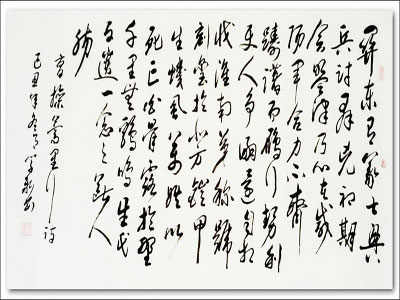 關東有義士興
兵討群兇初期
會盟津乃心在咸
陽軍合力不齊
躊躇而雁行勢利
使人爭嗣還自相
戕淮南弟稱號
刻璽於北方鎧甲
生蟣虱萬姓以
死亡白骨露於野
千里無鷄鳴生民
百遺一念之斷人
腸
曹操蒿里行詩
己丑年冬月